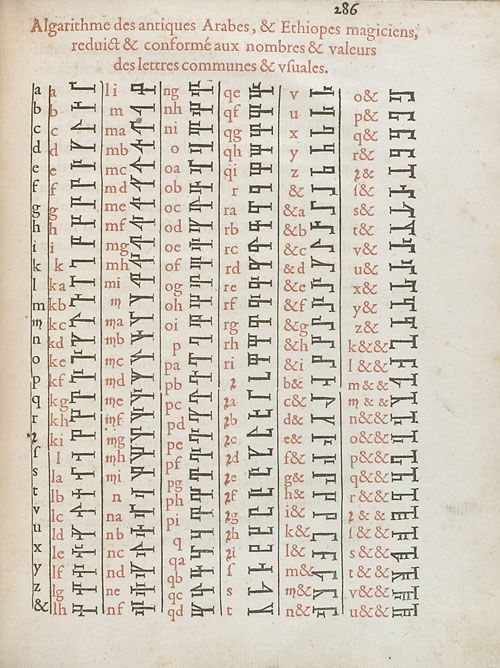 286
Algarithme des antiques Arabes, & Ethiopes magiciens,
reduict & conformé aux nombres & valeurs
des lettres communes & vſuales.
a a li ng qe v o&
b b m nh qf u p&
c c ma ni qg x q&
d d mb o qh y r&
e e mc oa qi z ꝛ&
f f md ob r & ſ&
g g me oc ra &a s&
h h mf od rb &b t&
i i mg oe rc &c v&
k k mh of rd &d u&
l ka mi og re &e x&
m kb ɱ oh rf &f y&
ɱ kc ɱa oi rg &g z&
n kd ɱb p rh &h k&&
o ke ɱc pa ri &i l&&
p kf ɱd pb ꝛ b& m&&
q kg ɱe pc ꝛa c& ɱ&&
r kh ɱf pd ꝛb d& n&&
ꝛ ki ɱg pe ꝛc e& o&&
ſ l ɱh pf ꝛd f& p&&
s la ɱi pg ꝛe g& q&&
t lb n ph ꝛf h& r&&
v lc na pi ꝛg i& ꝛ&&
u ld nb q ꝛh k& ſ&&
x le nc qa ꝛi l& s&&
y lf nd qb ſ m& t&&
z lg ne qc s ɱ& v&&
& lh nf qd t n& u&&